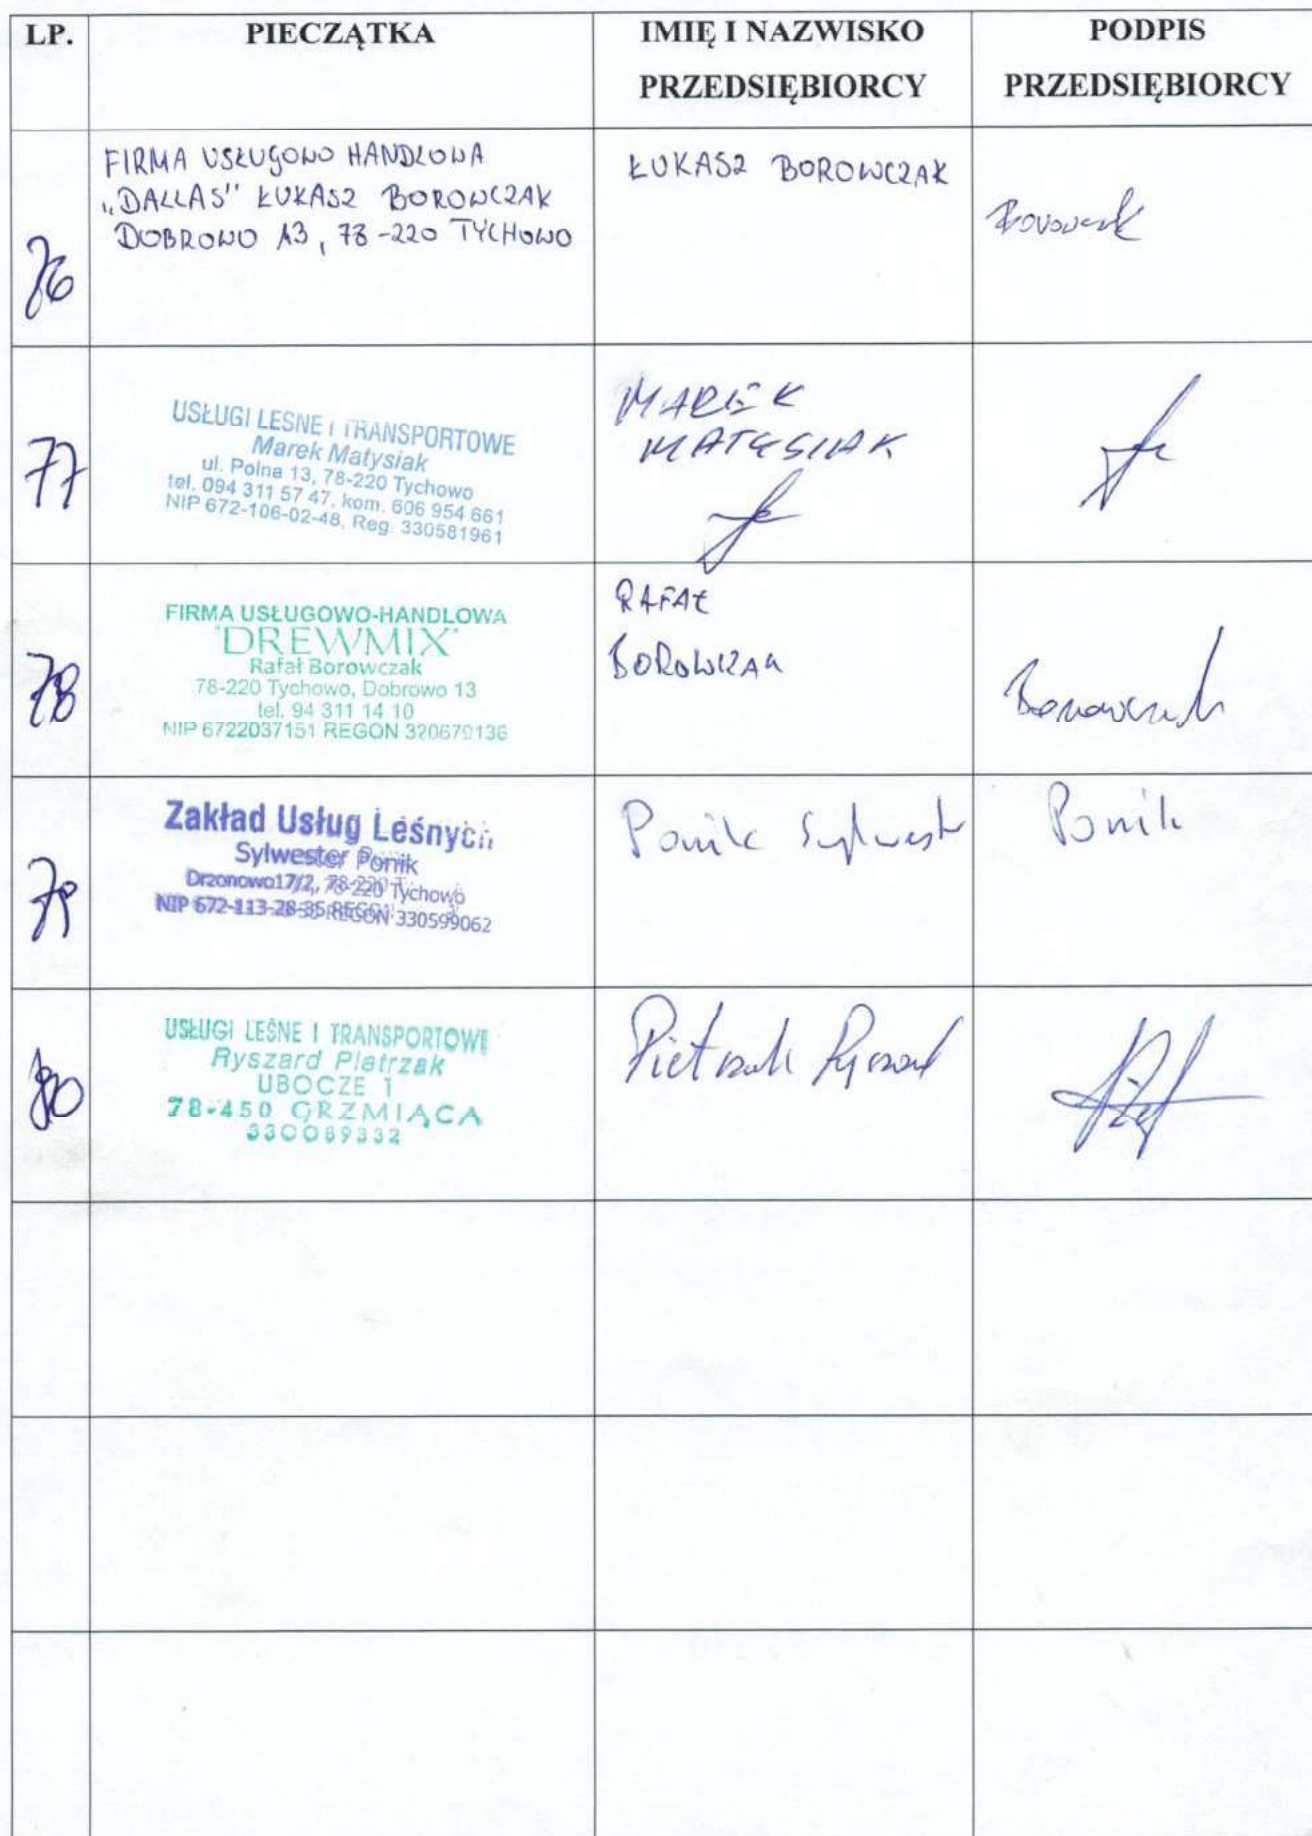 LP. PIECZĄTKA IMIĘ I NAZWISKO PRZEDSIĘBIORCY PODPIS PRZEDSIĘBIORCY
76
FIRMA USŁUGOWO HANDLOWA
„DALLAS" ŁUKASZ BOROWCZAK
DOBROWO 13, 78-220 TYCHOWO
ŁUKASZ BOROWCZAK
77
USŁUGI LEŚNE I TRANSPORTOWE
Marek Matysiak
ul. Polna 13, 78-220 Tychowo
tel. 094 311 57 47, kom. 606 954 661
NIP 672-106-02-48, Reg. 330581961
MAREK
MATYSIAK
78
FIRMA USŁUGOWO-HANDLOWA
"DREWMIX"
Rafał Borowczak
78-220 Tychowo, Dobrowo 13
tel. 94 311 14 10
NIP 6722037151 REGON 320679136
RAFAŁ
BOROWCZAK
Borowczak
79
Zakład Usług Leśnych
Sylwester Ponik
Drzonowo17/2, 78-220 Tychowo
NIP 672-113-28-35 REGON 330599062
Ponik Sylwester
Ponik
80
USŁUGI LEŚNE I TRANSPORTOWE
Ryszard Pietrzak
UBOCZE 1
78-450 GRZMIĄCA
330089332
Pietrzak Ryszard